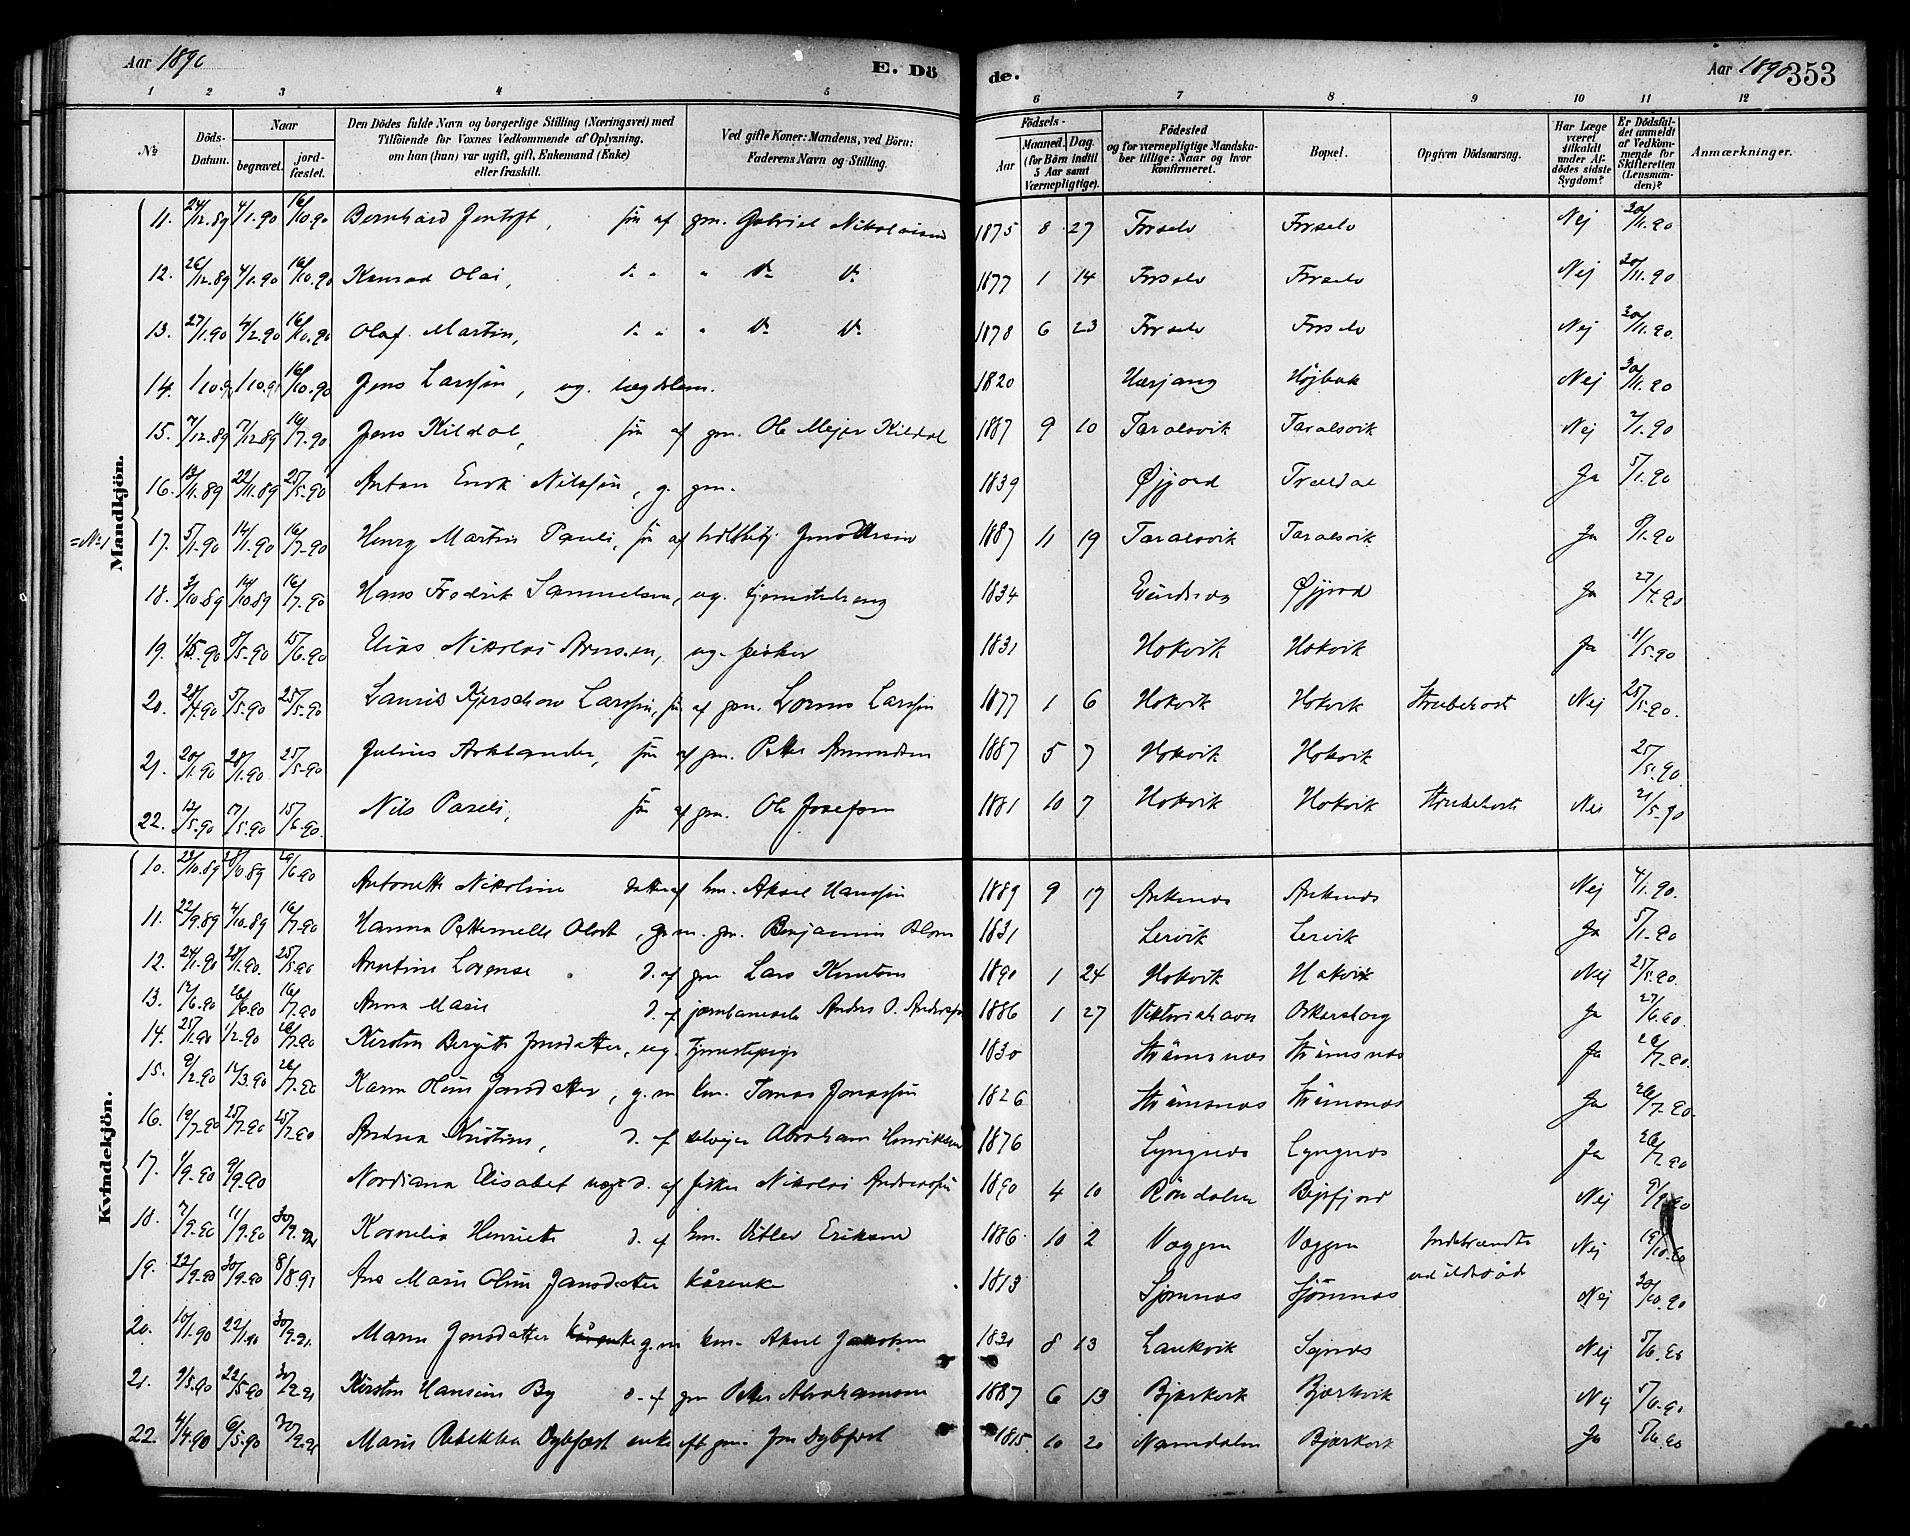 Aar 1890 E. Dö
de. Aar 1890 353
1 2 3 4 5 6 7 8 9 10 11 12
No Döds-Datum. Naar begravet. jordfæstet. Den Dödes fulde Navn og borgerlige Stilling (Næringsvei) med Tilföiende for Voxnes Vedkommende af Oplysning, om han (hun) var ugift, gift, Enkemand (Enke) eller fraskilt. Ved gifte Koner: Mandens, ved Börn: Faderens Navn og Stilling. Födsels- Aar Maaned. Dag. (for Börn indtil 5 Aar samt Værnepligtige). Födested og for værnepligtige Mandskaber tillige: Naar og hvor konfirmeret. Bopæl. Opgiven Dödsaarsag. Har Læge været tilkaldt under Afdödes sidste Sygdom? Er Dödsfaldet anmeldt af Vedkommende for Skifteretten (Lensmanden)? Anmærkninger.
Mandkjön.
11. 24/12.89 4/1.90 16/10.90 Bernhard Jentoft, sön af gm. Gabriel Nikolaisen 1875 8 27 Forselv Forselv Nej 30/11.90
12. 26/12.89 4/1.90 16/10.90 Konrad Olai, do " " do do 1877 1 14 Forselv Forselv Nej 30/11.90
13. 27/1.90 4/2.90 16/10.90 Olaf Martin, do " " do do 1878 6 23 Forselv Forselv Nej 30/11.90.
14. 16/10.90 Jens Larssen, ug. lægdslem. 1820 Herjang Højbak Nej 30/11.90
15. 7/12.89 7/12.89 16/7.90 Jens Kildal, sön af gm. Ole Mejer Kildal 1887 9 10 Taralsvik Taralsvik Nej 2/1.90
16. 13/11.89 22/11.89 25/5.90 Anton Erik Nilssen, g. gm. 1839 Øjjord Traldal Ja 5/1.90
=No 1 17. 5/1.90 14/1.90 16/7.90 Henry Martin Pauli, sön af 1887 11 19 Taralsvik Taralsvik Ja 8/1.90
18. 3/10.89 14/10.89 16/7.90 Hans Fredrik Samuelsen, ug. tjenestedreng 1834 Evindsnes Øjjord Ja 27/4.90
19. 1/5.90 8/5.90 15/6.90 Elias Nikolai Arnesen, ug. fisker 1831 Hokvik Hokvik Ja 11/5.90
20. 28/4.90 5/5.90 25/5.90 Lauris Kjerschow Larssen, sön af gm. Lorns Larssen 1877 1 6 Hokvik Hokvik Strubehoste Nej 25/5.90.
21. 20/1.90 28/1.90 25/5.90 Julius Arklander, sön af gm. Petter Amundsen 1887 5 7 Hokvik Hokvik 25/5.90
22. 12/5.90 17/5.90 15/6.90. Nils Pareli, sön af gm. Ole Josefsen 1881 10 7 Hokvik Hokvik Strubehoste Nei 21/5.90
Kvindekjön.
10. 22/10.89 28/10.89 29/6.90 Antonette Nikoline datter af hm. Aksel Hanssen 1889 9 17 Ankenes Ankenes Nej 4/1.90.
11. 22/9.89 4/10.89 16/7.90 Hanna Petternelle Olsdt, g.m. gm. Benjamin Blom 1831 Lervik Lervik Ja 5/1.90
12. 24/1.90 28/1.90. 25/5.90 Arntine Lorense d. af gm Lars Knutsen 1890 1 24 Hokvik Hokvik Nej 25/5.90.
13. 17/6.90 26/6.90 16/7.90 Anna Marie d. af Anders O. Anderssen 1886 1 27 Viktoriahavn Orkersborg Ja 27/6.90.
14. 25/1.90 1/2.90 26/7.90 Kirsten Birgitte Jensdatter, ug. tjenestepige 1830 Strömsnes Strömsnes Ja 26/7.90.
15. 9/2.90 17/3.90 26/7.90 Karen Oline Jonsdatter, g.m km. Tomas Jonassen 1826 Strömsnes Strömsnes Ja 26/7.90.
16. 19/7.90 25/7.90 25/7.90 Andrea Kristine, d. af selvejer Abraham Henriksen 1876 Lyngnes Lyngnes Ja 26/7.90
17. 1/9.90 9/9.90 Nordiana Elisabet uægte d. af fisker Nikolai Anderssen 1890 4 10 Röndalen Bejsfjord Nej 9/9.90
18. 7/9.90 11/9.90 30/9.91 Kornelia Henriette d. af hm. Detlev Eriksen 1886 10 2 Væggen Væggen Indebrændte ved ildsvåde Nej 19/10.90
19. 22/9.90 30/9.90 8/8.91 Ane Marie Oline Jonsdatter kårenke 1813 Sjömnes Sjömnes Nej 30/10.90
20. 10/1.90 22/1.90 30/9.91. Maren Jensdatter kårenke g.m km. Aksel Jakobsen 1831 8 13 Laukvik Nej 5/6.90
21. 9/5.90 22/5.90 30/9.91 Kirsten Hansine By d. af gm Petter Abrahamsen 1887 6 13 Bjerkvik Bjerkvik Nej 5/6.90
22. 4/4.90 6/5.90 30/9.91 Maren Rebekka Dybfest enke eft gm. Jon Dybfest 1815 10 20 Namdalen Bjerkvik Ja 5/6.90